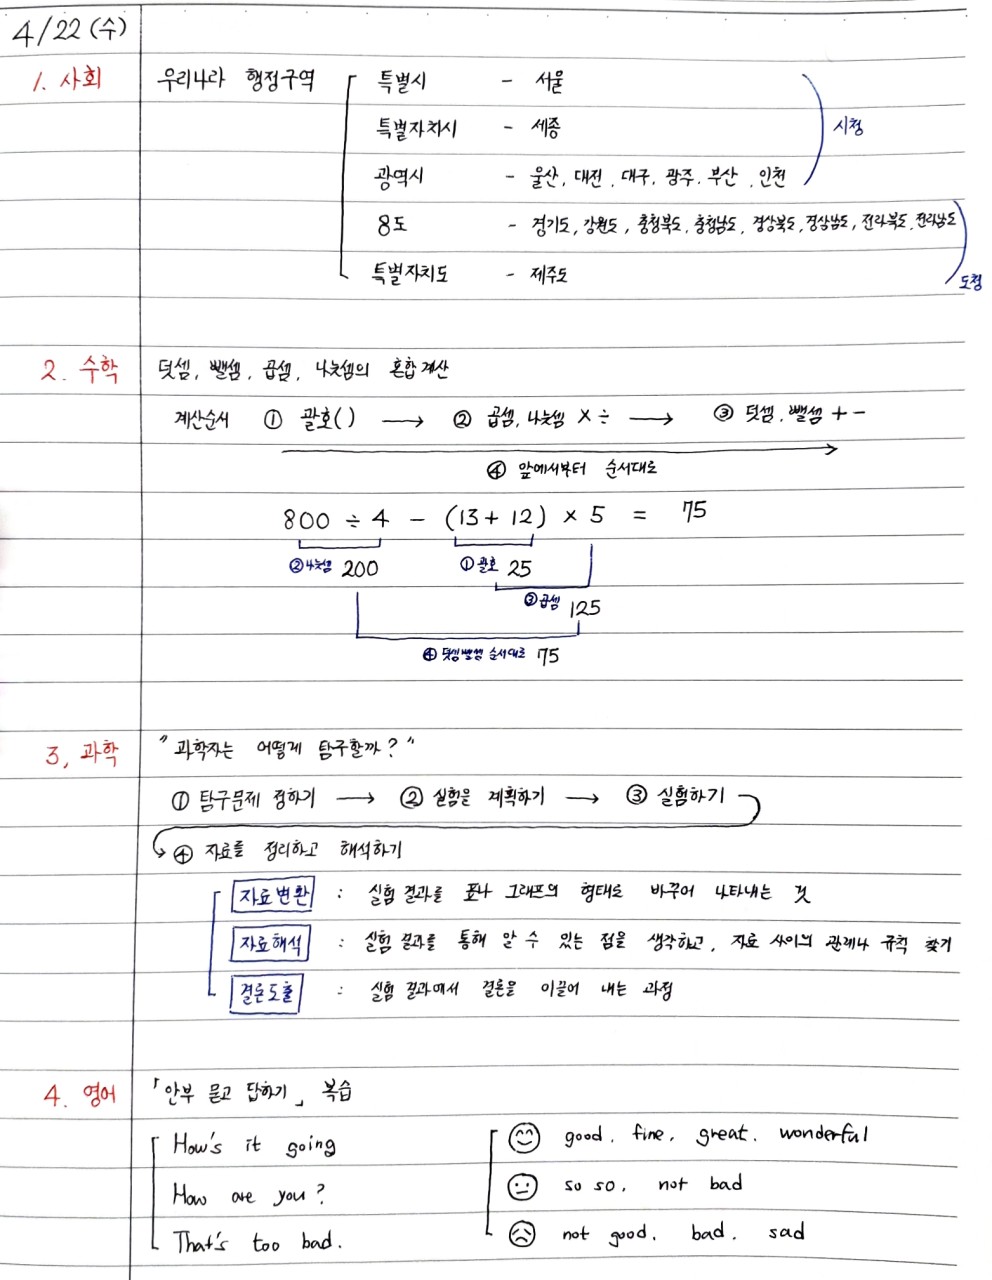 4/22 (수)
1. 사회 우리나라 행정구역 특별시 - 서울
특별자치시 - 세종 시청
광역시 - 울산, 대전, 대구, 광주, 부산, 인천
8도 - 경기도, 강원도, 충청북도, 충청남도, 경상북도, 경상남도, 전라북도, 전라남도
특별자치도 - 제주도 도청
2. 수학 덧셈, 뺄셈, 곱셈, 나눗셈의 혼합 계산
계산순서 ① 괄호( ) → ② 곱셈, 나눗셈 × ÷ → ③ 덧셈, 뺄셈 + -
④ 앞에서부터 순서대로
800 ÷ 4 - (13 + 12) × 5 = 75
②나눗셈 200 ①괄호 25
③곱셈 125
④ 덧셈뺄셈 순서대로 75
3, 과학 "과학자는 어떻게 탐구할까?"
① 탐구문제 정하기 → ② 실험을 계획하기 → ③ 실험하기
④ 자료를 정리하고 해석하기
자료변환 : 실험 결과를 표나 그래프의 형태로 바꾸어 나타내는 것
자료해석 : 실험 결과를 통해 알 수 있는 점을 생각하고, 자료 사이의 관계나 규칙 찾기
결론도출 : 실험 결과에서 결론을 이끌어 내는 과정
4. 영어 「안부 묻고 답하기」 복습
How's it going good, fine, great, wonderful
How are you? so so, not bad
That's too bad. not good, bad, sad